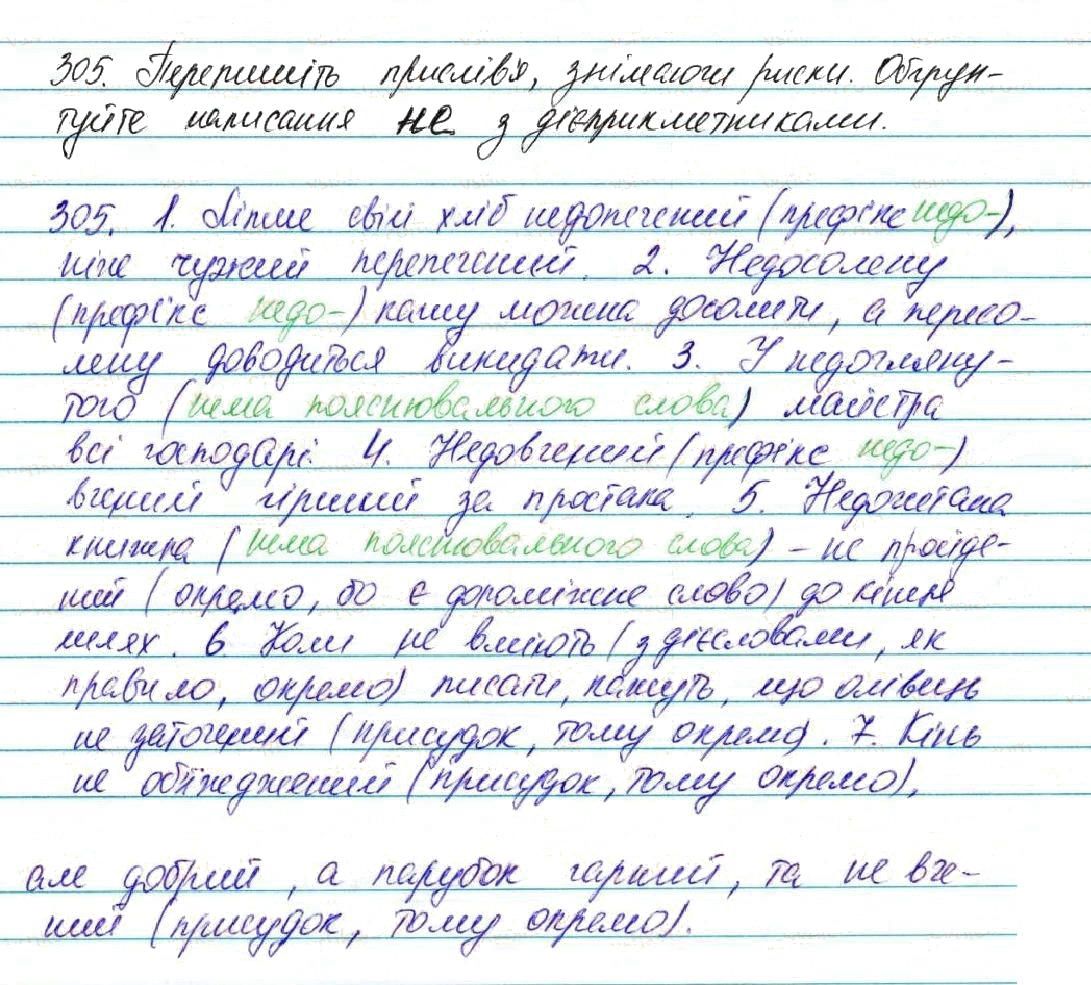 305. Перепишіть прислів'я, знімаючи риски. Обґрун-
туйте написання не з дієприкметниками.
305. 1. Ліпше свій хліб недопечений (префікс недо-),
ніж чужий перепечений. 2. Недосолену
(префікс недо-) кашу можна досолити, а пересо-
лену доводиться викидати. 3. У недогляну-
того (нема пояснювального слова) майстра
всі господарі. 4. Недовчений (префікс недо-)
вчений гірший за простака. 5. Недочитана
книжка (нема пояснювального слова) – не пройде-
ний (окремо, бо є допоміжне слово) до кінця
шлях. 6. Коли не вміють (з дієсловами, як
правило, окремо) писати, кажуть, що олівець
не заточений (присудок, тому окремо). 7. Кінь
не об'їжджений (присудок, тому окремо),
але добрий, а парубок гарний, та не вче-
ний (присудок, тому окремо).